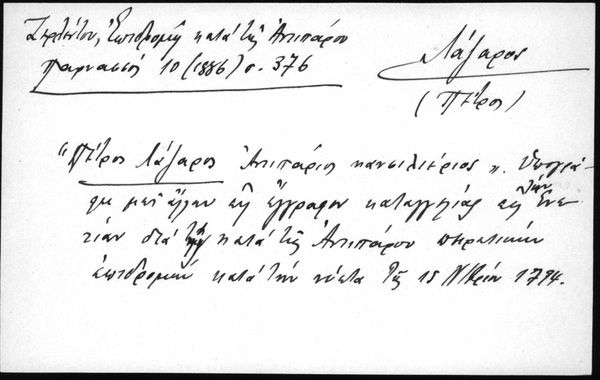 Ζερλέντου, Ἐπιδρομὴ κατὰ τῆς Ἀντιπάρου
Παρνασσός 10 (1886) σ. 376
Λάζαρος
(Πέτρος)
"Πέτρος Λάζαρος Ἀντιπάριος καντσιλιέριος κ. Ὑπογρά-
φει μετ' ἄλλων εἰς ἔγγραφον καταγγελίας εἰς τὴν Ἐνε-
τίαν διὰ τὴν κατὰ τῆς Ἀντιπάρου πειρατικὴν
ἐπιδρομὴν κατὰ τὴν νύκτα τῆς 15 Νβρίου 1794.